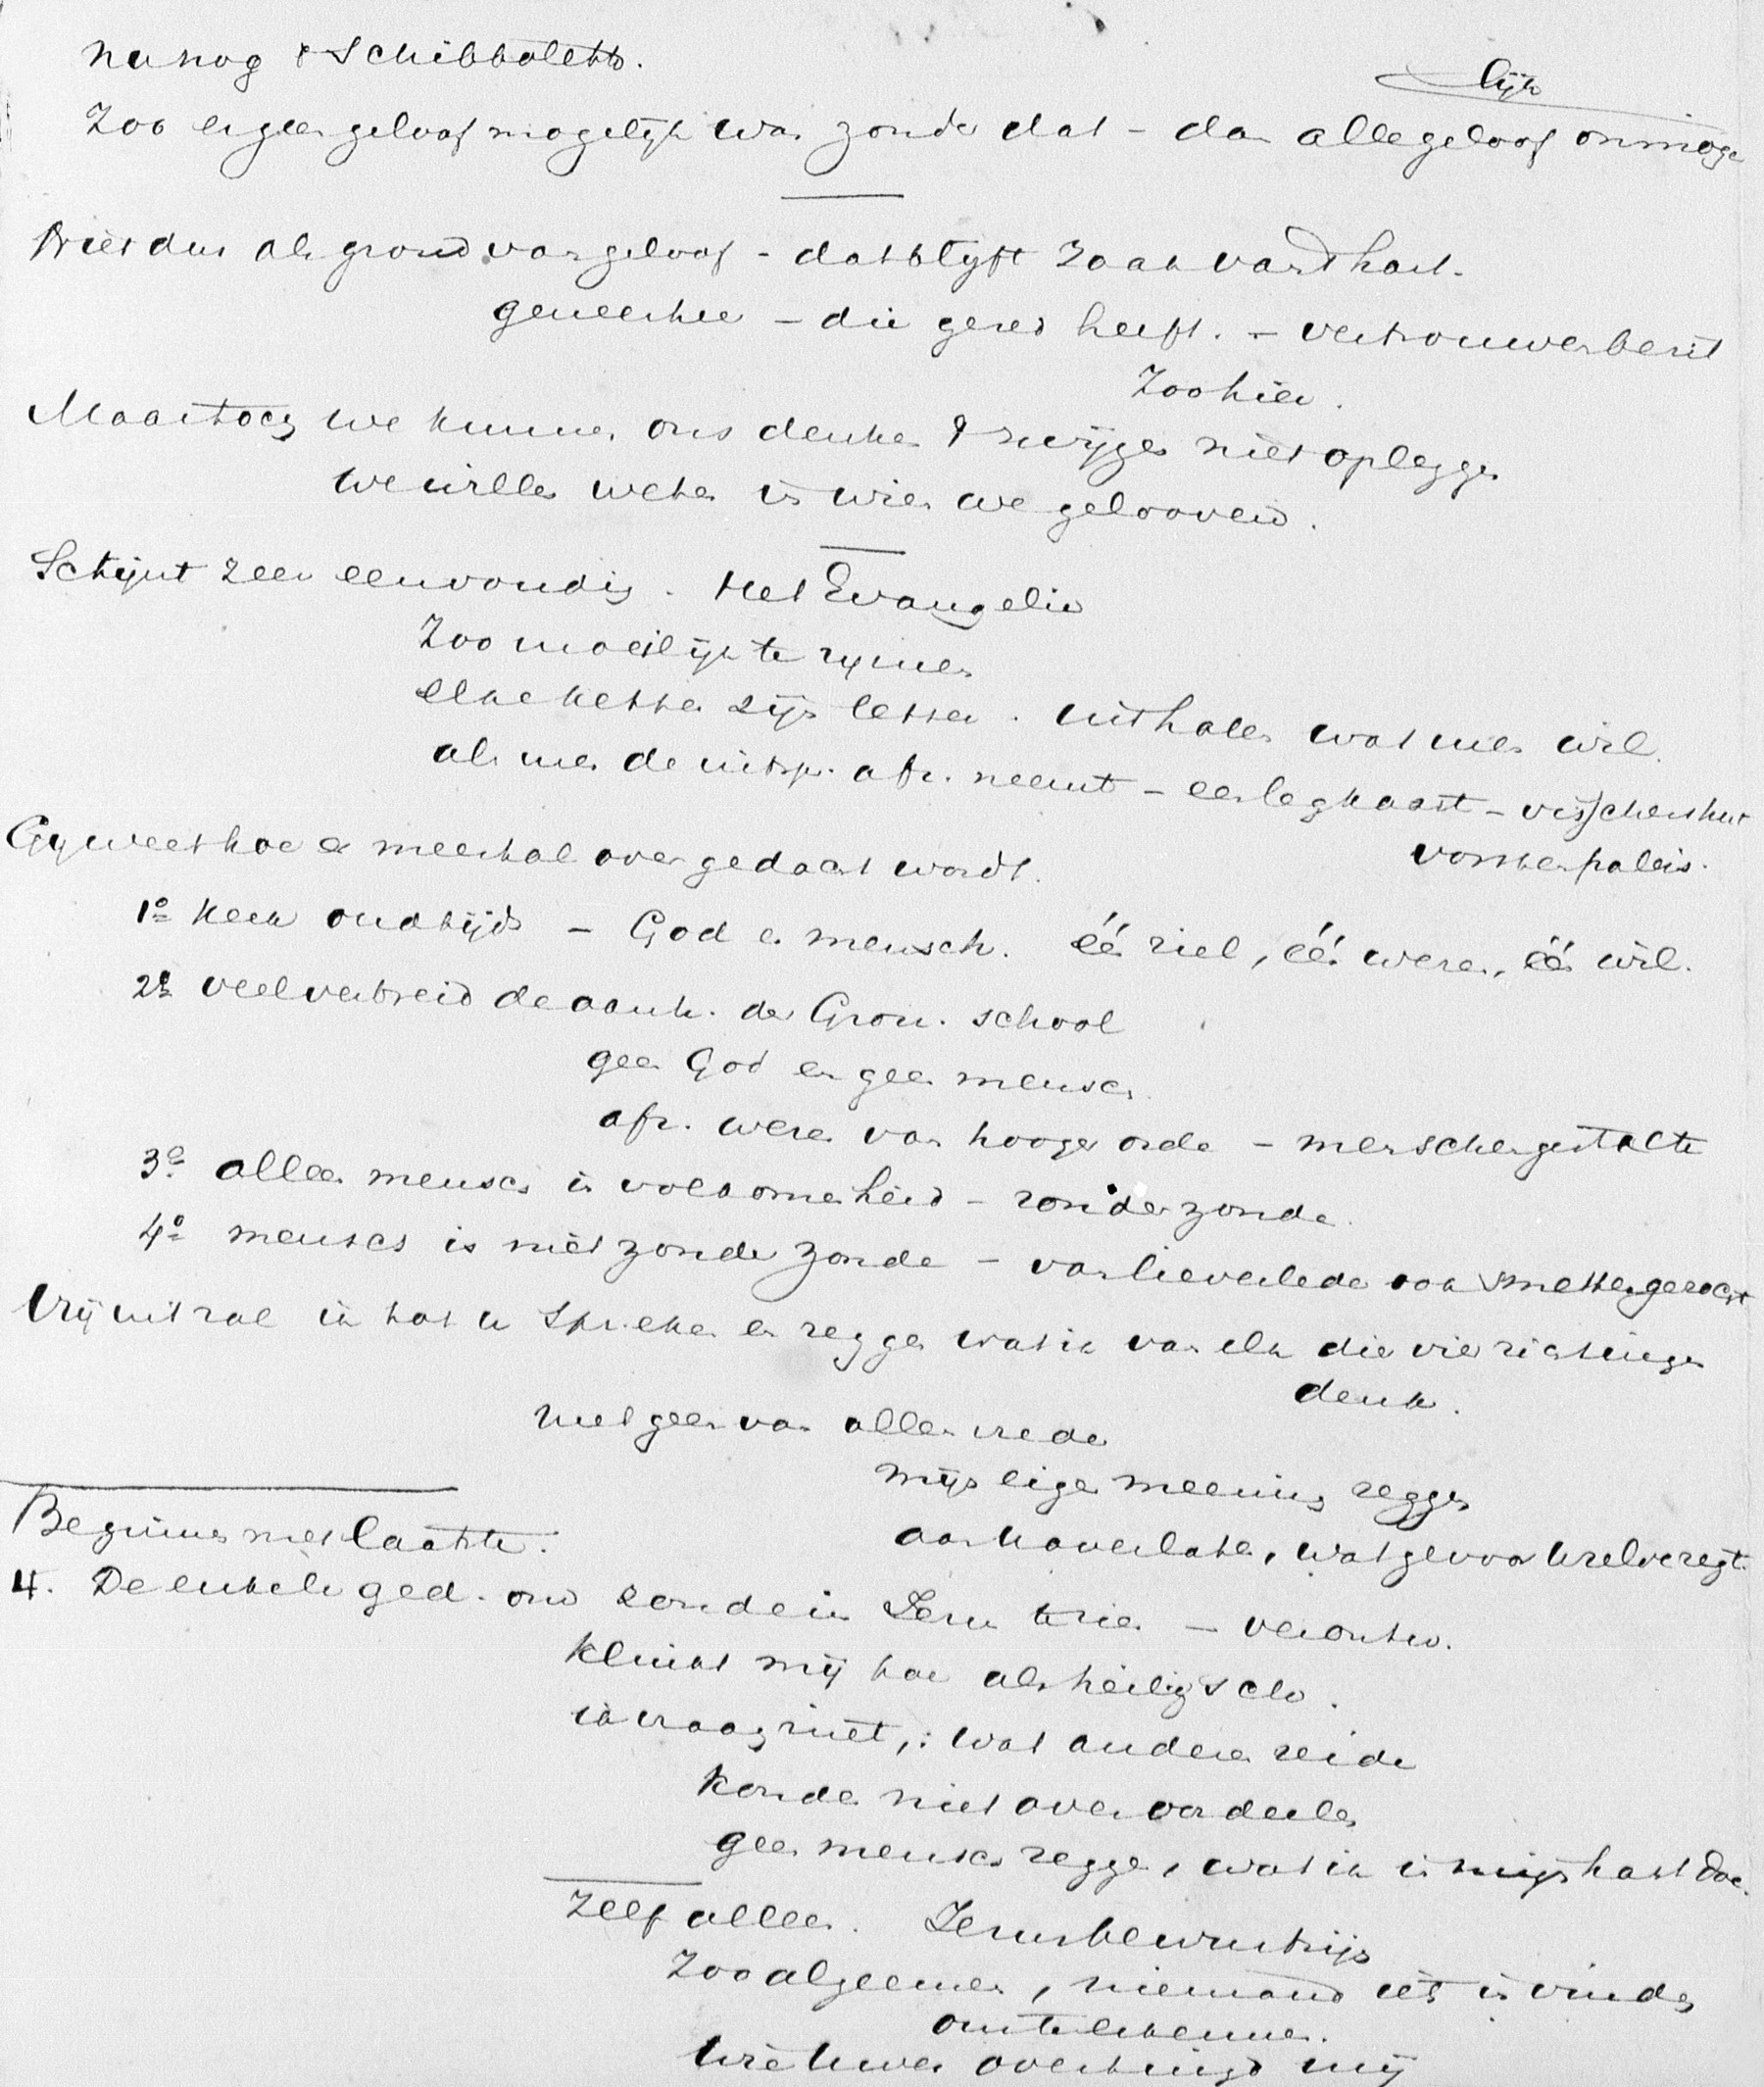 nu nog 't Schibboleth.
Zoo er geen geloof mogelijk was zonder dat - dan alle geloof onmoge
lijk
Niet dus als grond van geloof - dat blijft zaak van 't hart.
geneesheer - die gered heeft. - vertrouwen berust
Zoo hier.
Maar toch we kunnen ons denken 't zwijgen niet opleggen
we willen weten in wien we gelooven.
Schijnt zeer eenvoudig. Het Evangelie
Zoo moeilijk te rijmen
elke ketter zijn letter. uithalen wat men wil.
als men de uitspr. afz. neemt - een legkaart - visschershut
vorstenpaleis.
Gij weet hoe er meestal over gedacht wordt.
1o Kerk oudtijds - God en mensch. één ziel, één wezen, één wil.
2o veel verbreid de aanh. der Gron. school
geen God en geen mensch
afz. wezen van hooger orde - menschengestalte
3o alleen mensch in volkomenheid - zonder zonde.
4o mensch is niet zonder zonde - van lieverlede ook smetten gezocht
Vrijuit zal ik tot u spreken en zeggen wat ik van elk die vier richtingen
denk.
met geen van allen vrede
mijn eigen meening zeggen
aan u overlaten, wat ge voor u zelve zegt.
Beginnen met laatste.
4. De enkele ged. om zonde in Jezus te zien - verontw.
klinkt mij toe als heiligsch.
ik vraag niet, : wat anderen zeiden
konden niet over oordeelen
geen mensch zeggen, wat ik in mijn hart doe.
Zelf alleen. Jezus bewustzijn
Zoo algemeen, niemand iets in vinden
om te erkennen.
Wie uwer overtuigt mij